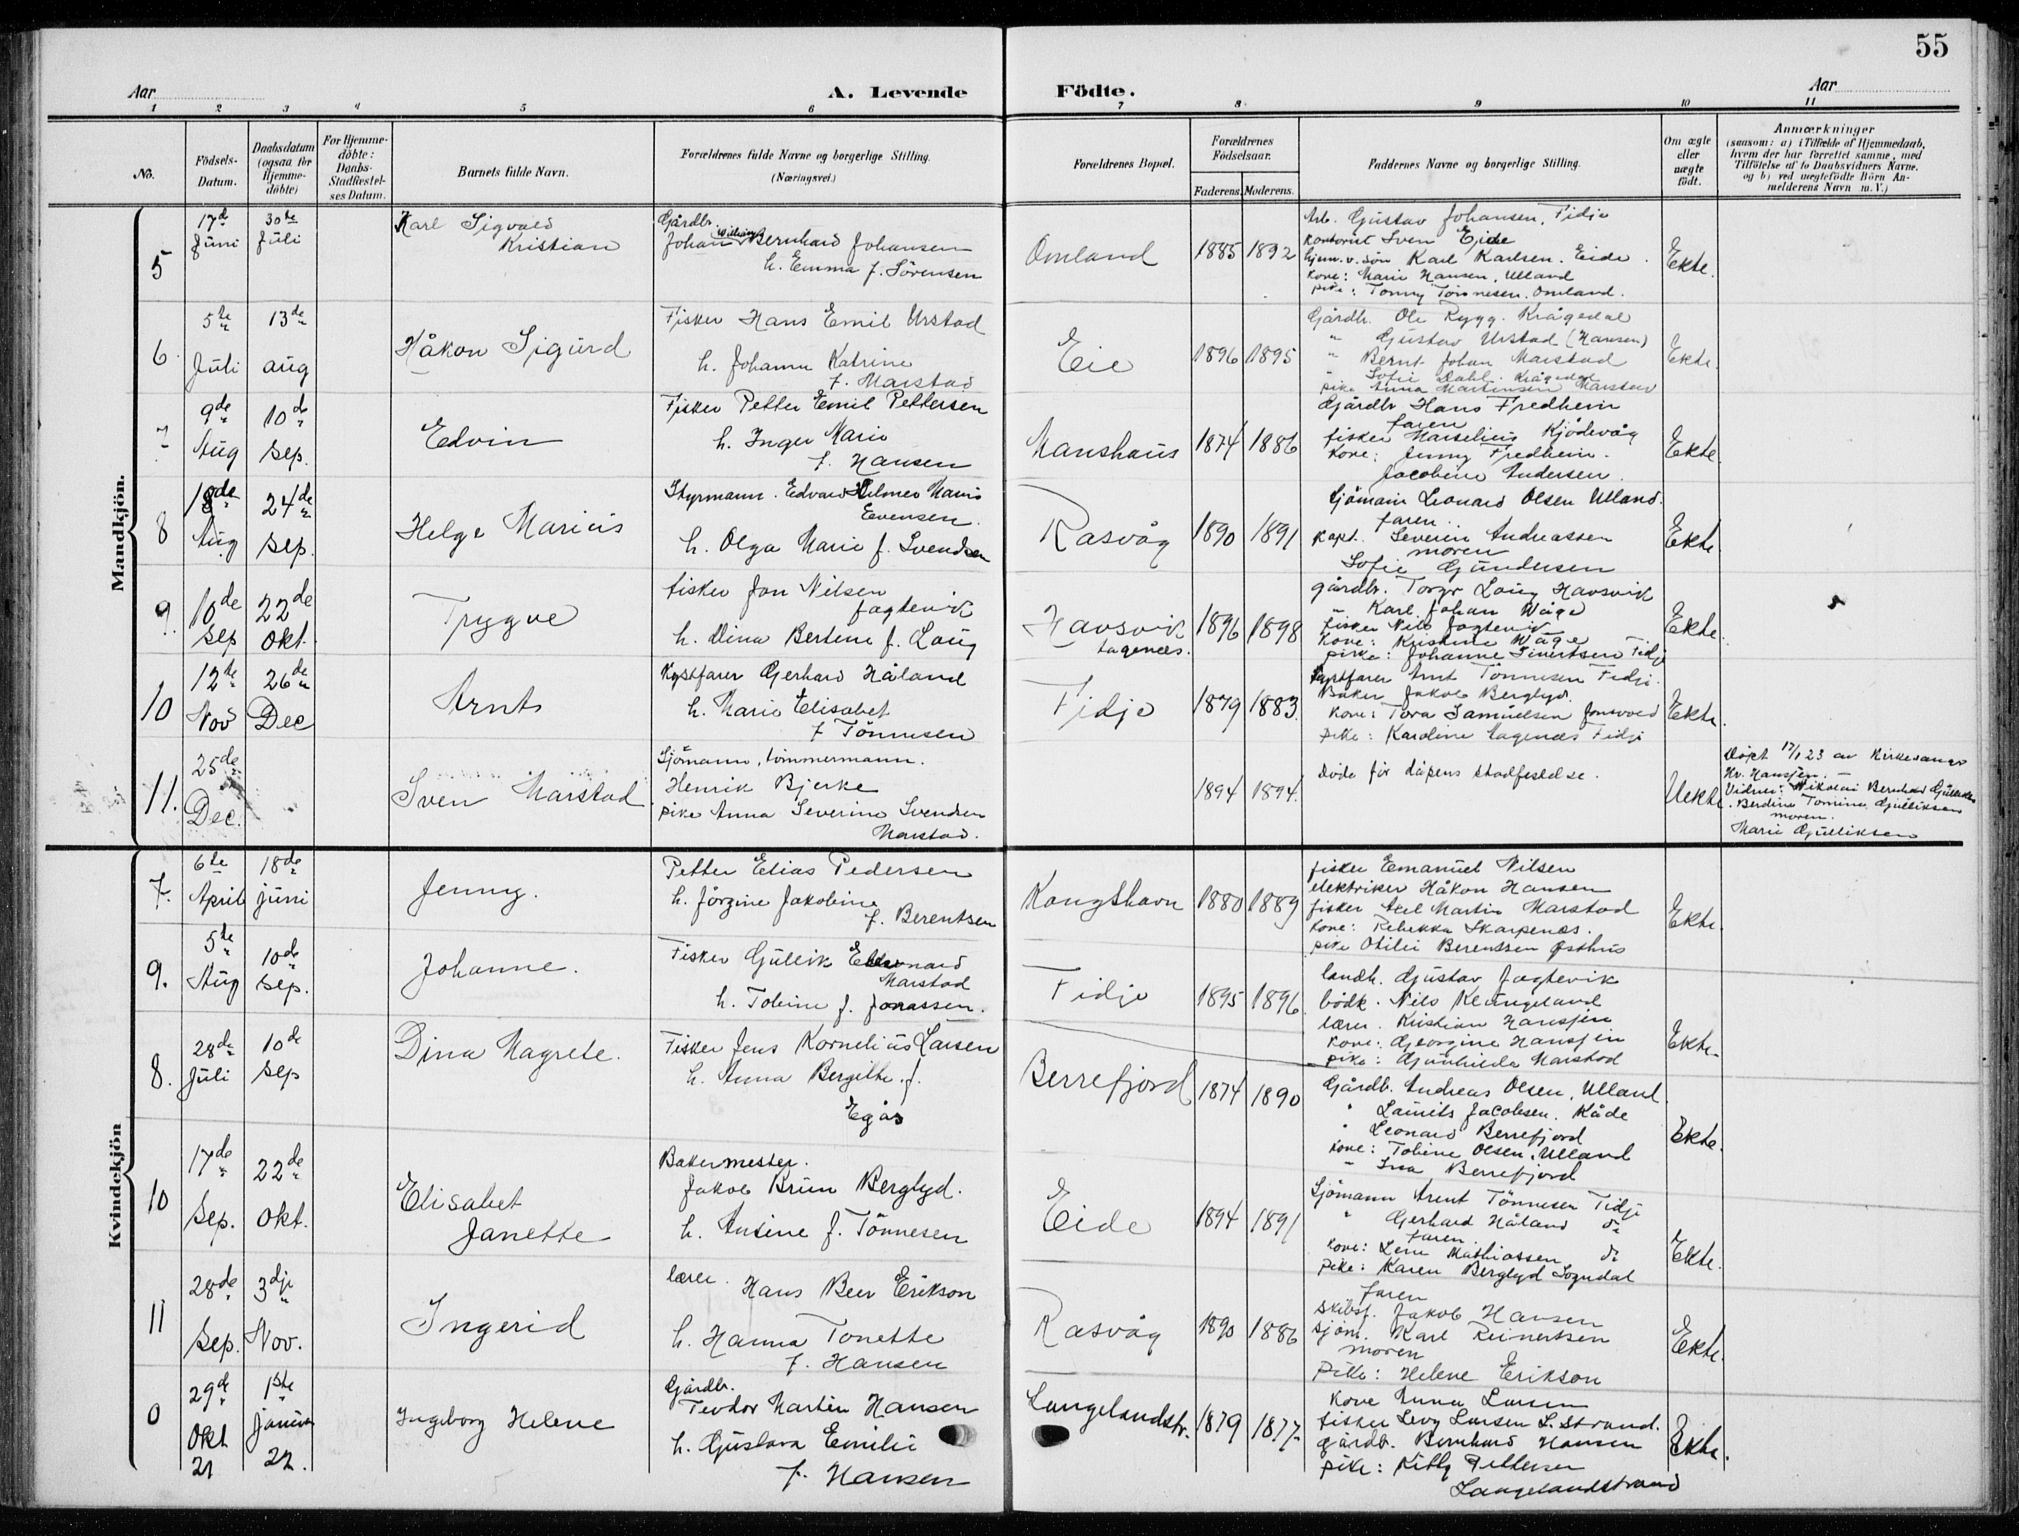 55
Aar
A. Levende Födte.
Aar
1 2 3 4 5 6 7 8 9 10 11
No.
Födsels-
Datum.
Daabsdatum
(ogsaa for
Hjemme-
döbte)
For Hjemme-
döbte:
Daabs-
Stadfestel-
ses Datum.
Barnets fulde Navn.
Forældrenes fulde Navne og borgerlige Stilling.
(Næringsvei.)
Forældrenes Bopæl.
Forældrenes
Födselsaar.
Faderens. Moderens.
Faddernes Navne og borgerlige Stilling.
Om ægte
eller
uægte
födt.
Anmærkninger
(saasom: a) i Tilfælde af Hjemmedaab,
hvem der har forrettet samme, med
Tilføielse af to Daabsvidners Navne.
og b) ved uægtefödte Börn An-
melderens Navn m. V.)
Mandkjön.
5
17d Juni
30te Juli
Karl Sigvald
Kristian
Gårdbr.
Johan Bernhard Johansen
h. Emma f. Sörensen
Omland
1885 1892
Arb. Gustav Johansen, Fidje
Sven Eide
Karl Karlsen. Eide
Kone: Marie Hansen, Ulland
pike: Tonny Tönnesen. Omland.
Ekte.
6
5te Juli
13de aug
Håkon Sigurd
Fisker Hans Emil Urstad
h. Johanne Katrine
f. Marstad
Eie
1896 1895
Gårdb. Ole Rygg. Krågedal
" Gustav Urstad (Hansen)
" Bernt Johan Marstad
" Sofie Dahl. Krågedal
pike Anna Martinsen Marstad
Ekte
7
9de Aug
10d Sep.
Edvin
Fisker Petter Emil Pettersen
h. Inger Marie
f. Hansen
Hanshaus
1874 1886
Gjårdbr Hans Fredheim
faren
fisker Marselius Kjödevåg
Kone: Jenny Fredheim.
Jacobine Andersen.
Ekte.
8
18de Aug
24de Sep.
Helge Marius
Styrmann. Edvard Hilmer Maris
Evensen.
h. Olga Marie f. Svendsen
Rasvåg
1890 1891
Sjömann Leonard Olsen Ulland.
faren..
Kapt. Severin Andreassen
moren
Sofie Gundersen
Ekte
9.
10de Sep
22de Okt.
Trygve
fisker Jon Nilsen
Jagtevik
h. Dina Bertine f. Laug
Havsvik
Lagenæs.
1896 1898
gårdb. Torgr Laug Havsvik
Karl Johan Våge
fisker Nils Jagtevik
Kone: Kristine Våge
pike: Johanne Sivertsen Fidje
Ekte
10
12te Nov
26de Dec
Arnt
Kystfarer Gerhard Håland
h. Marie Elisabet
f Tönnesen
Fidje
1879 1883.
Kystfarer Arnt Tönnesen Fidje.
Baker Jakob Berglyd.
Kone: Tora Samuelsen Jonsvold
Pike: Karoline Lagenæs Fidje
Ekte.
11.
25de Dec.
Sven Marstad
Sjömann, tömmermann.
Henrik Bjerke
pike Anna Severine Svendsen
Marstad.
1894 1894.
Döde för dåpens stadfestelse.
Uekte
Döpt 17/1 23 av Kirkesanger
Kr. Hansjen. —
Vidner: Nikolai Bernhard Gulliksen
. Berdine Tomine Gulliksen
moren.
Marie Gulliksen
Kvindekjön
7.
6te April
18de juni
Jenny.
Petter Elias Pedersen
h. Jörgine Jakobine
f. Berentsen
Kongshavn
1880 1889
fisker Emanuel Nilsen
elektriker Håkon Hansen
fisker Axel Martin Marstad
Kone: Rebekka Skarpenæs.
pike Otilie Berentsen Østhus
Ekte.
9.
5te Aug
10de Sep.
Johanne.
Fisker Gullik Edvard
Marstad
h. Tobine f. Jonassen.
Fidje
1895 1896.
landh. Gustav Jagtevik
bödk. Nils Klungeland
lærer. Kristian Hansjen
Kone: Georgine Hansjen
pike: Gunhilda Marstad
Ekte.
8.
28de Juli
10de Sep
Dina Magrete.
Fisker Jens Kornelius Larsen
h. Anna Bergitte. f.
Egås
Berrefjord
1874 1890
Gårdb. Andreas Olsen, Ulland.
" Lauits Jacobsen. Kåde
" Leonard Berrefjord
Kone: Tobine Olsen, Ulland
" Ina Berrefjord
Ekte.
10
17de Sep.
22de Okt.
Elisabet
Janette
Bakermester.
Jakob Brun Berglyd.
h. Ansine f. Tönnesen
Eide
1894 1891
Sjömann Arent Tönnesen Fidje
" Gerhard Håland do
faren.
Kone: Lene Mathiassen do
Pike: Karen Berglyd Sogndal
Ekte.
11
28de Sep.
3dje Nov.
Ingerid
lærer. Hans Beer Erikson
h. Hanna Tonette
f. Hansen
Rasvåg
1890 1886
faren
Skibsf. Jakob Hansen
Sjöm. Karl Reinertsen
moren
Pike: Helene Erikson
Ekte.
0
29de Okt 21
1ste januar 22.
Ingeborg Helene
Gårdb.
Teodor Martin Hansen
h. Gustava Emilie
f. Hansen
Langelandstr.
1879 1877.
Kone Anna Larsen
fisker Levy Larsen L. Strand.
gårdb. Bernhard Hansen
pike: Kitty Pettersen
Langelandstrand
Ekte.